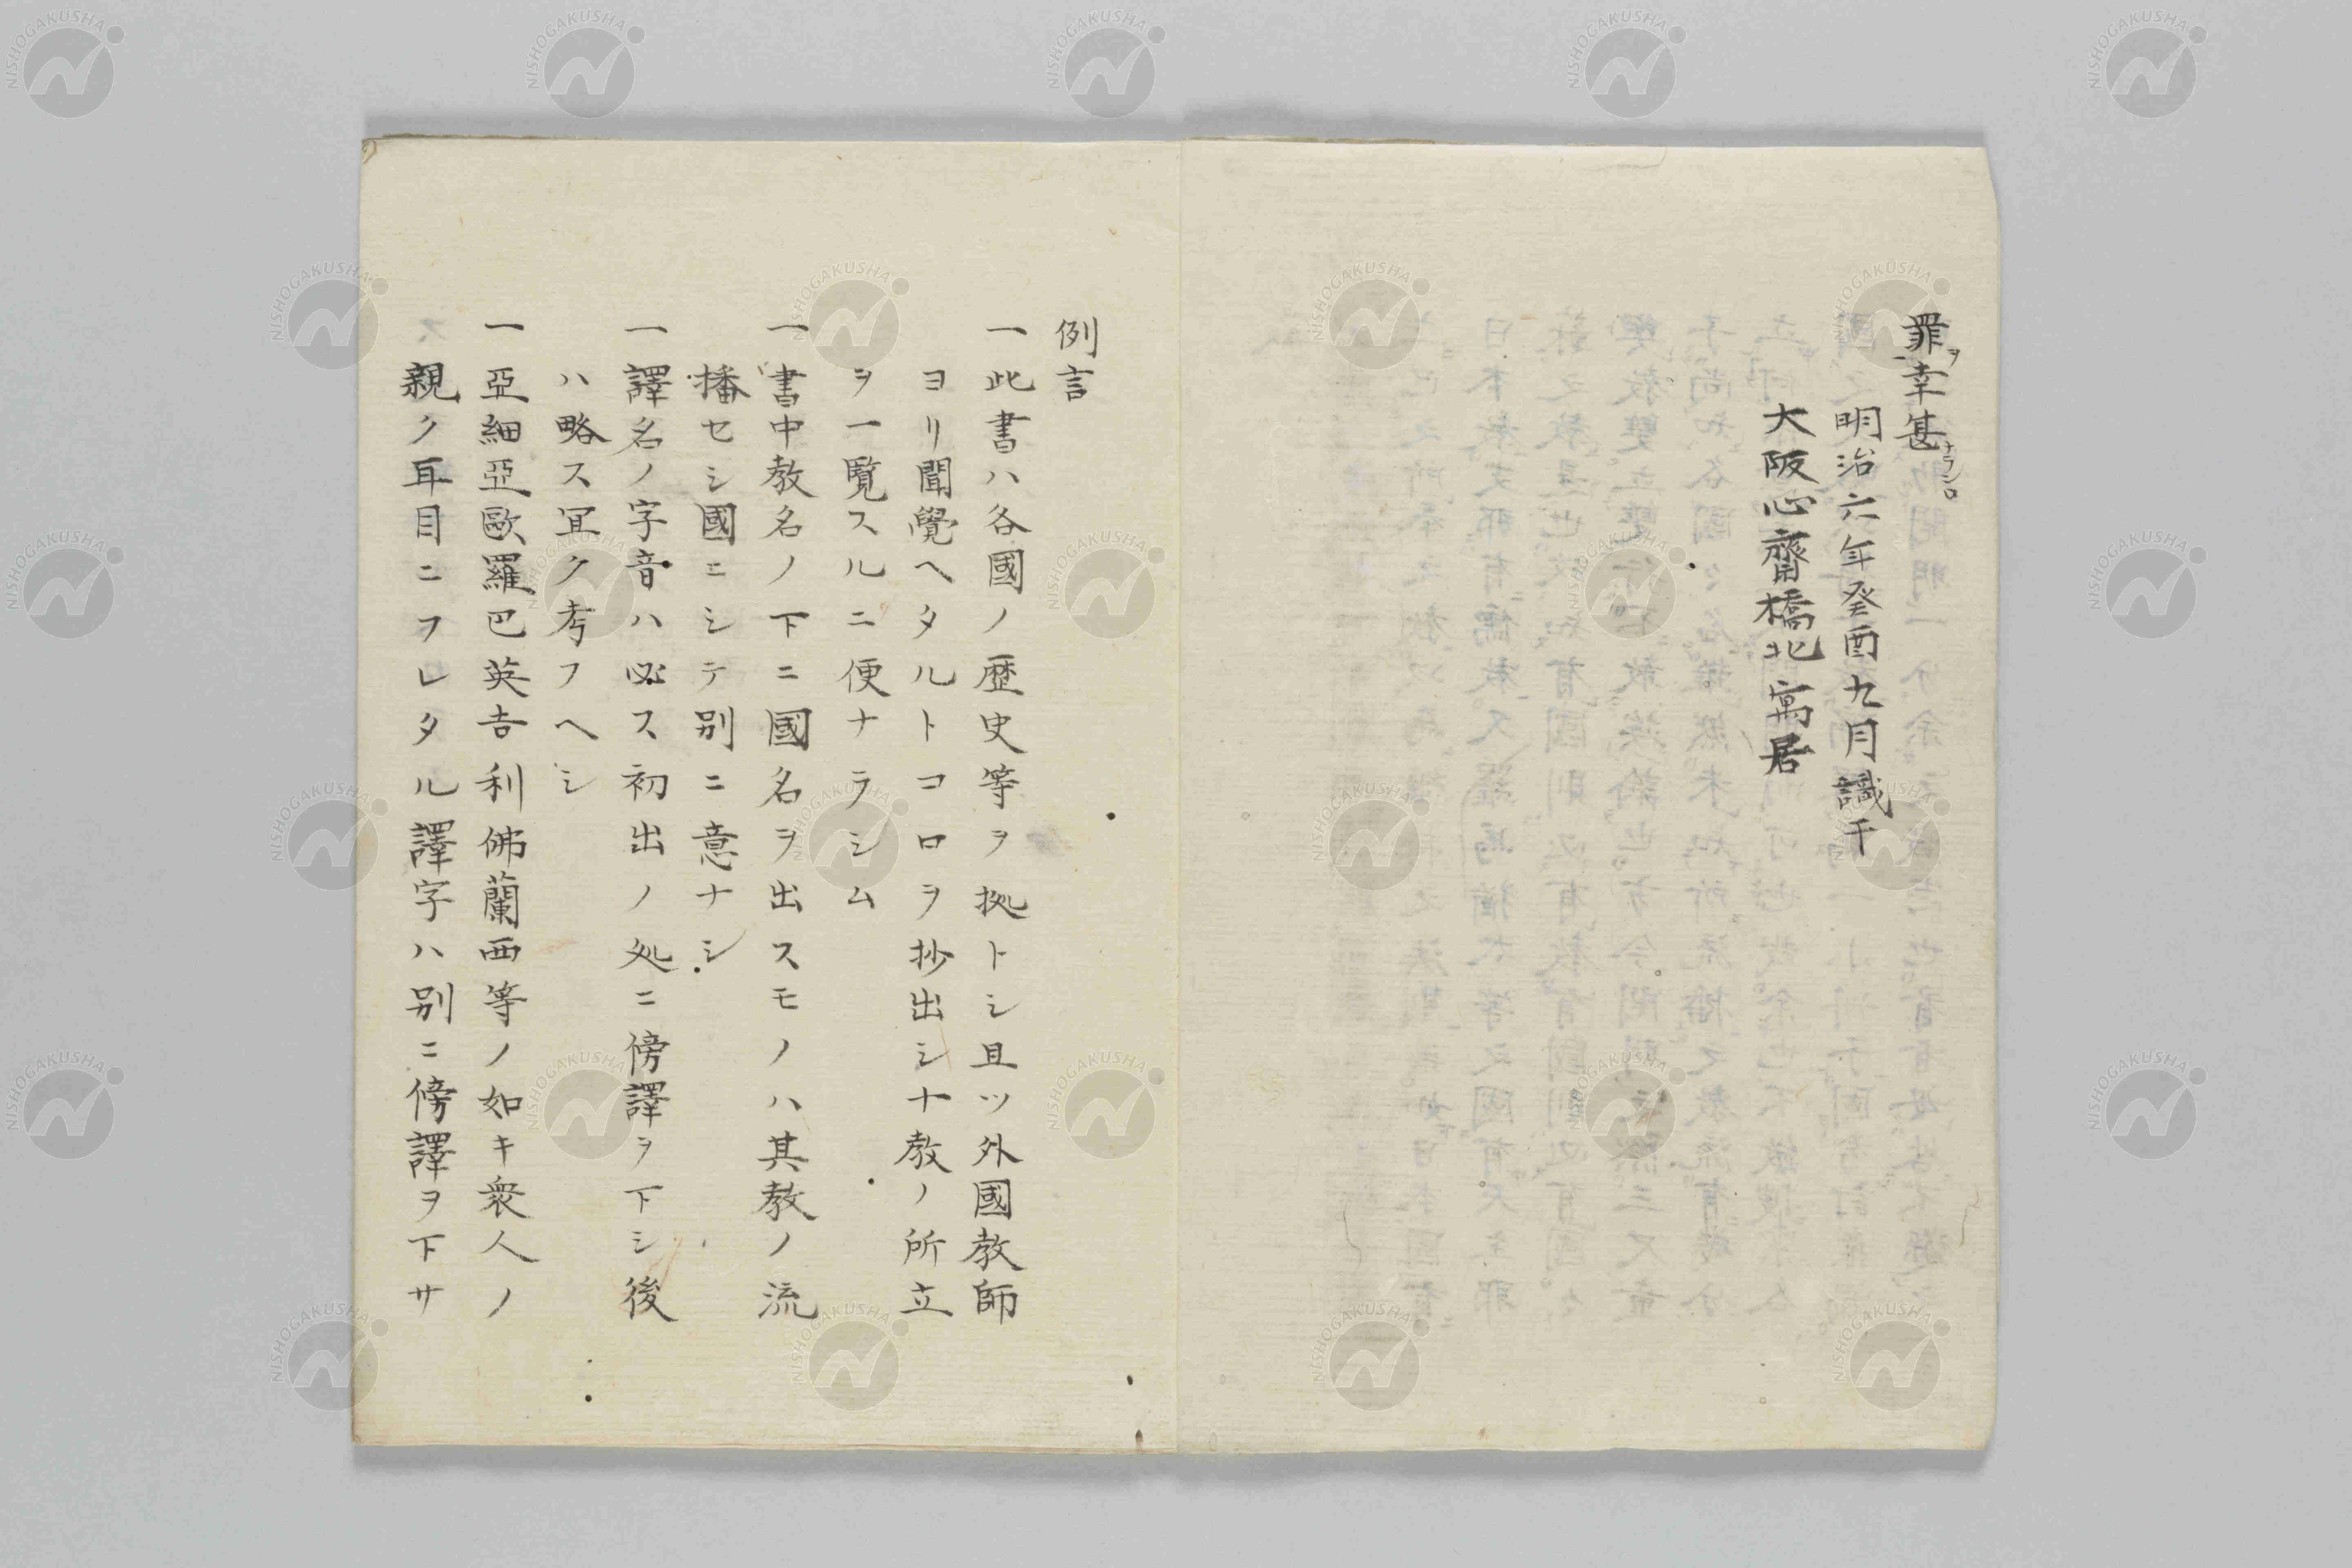 罪ヲ幸甚ナラン。
明治六年癸酉九月識于
大阪心齋橋北寓居
例言
一此書ハ各國ノ歴史等ヲ拠トシ且ツ外國教師
ヨリ聞覺ヘタルトコロヲ抄出シ十教ノ所立
ヲ一覧スルニ便ナラシム
一書中教名ノ下ニ國名ヲ出スモノハ其教ノ流
播セシ國ニシテ別ニ意ナシ
一譯名ノ字音ハ必ス初出ノ処ニ傍譯ヲ下シ後
ハ略ス冝ク考フヘシ
一亞細亞歐羅巴英吉利佛蘭西等ノ如キ衆人ノ
親ク耳目ニフレタル譯字ハ別ニ傍譯ヲ下サ